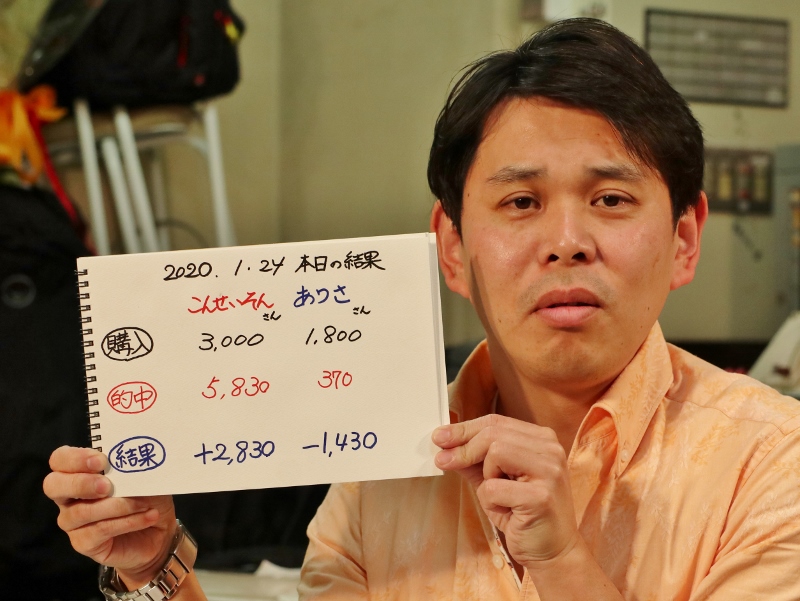 2020. 1.24 本日の結果
こんせいそんさん ありささん
購入 3,000 1,800
的中 5,830 370
結果 +2,830 -1,430